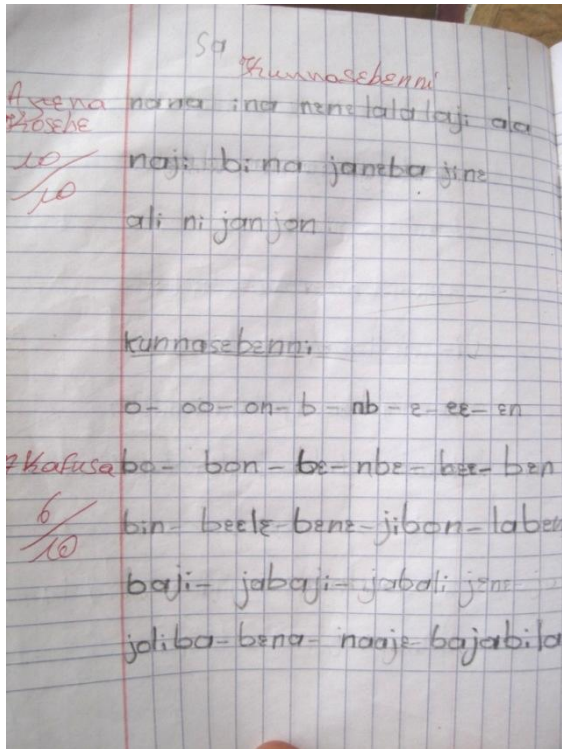 Sa
Kunnasebenni
Ayeena
Kosɛbɛ
nana ina nɛnɛ lala laji ala
10/10
naji bina janɛba jinɛ
ali ni janjon
kunnasebenni
o- oo- on- b- nb- ɛ- ɛɛ- ɛn
Kafisa
bo- bon- bɛ- nbɛ- bɛɛ- bɛn
6/10
bin- bɛɛlɛ- bɛnɛ- jibon- labɛn
baji- jabaji- jabali jɛnɛ
joliba- bɛna- naajɛ- bajabila